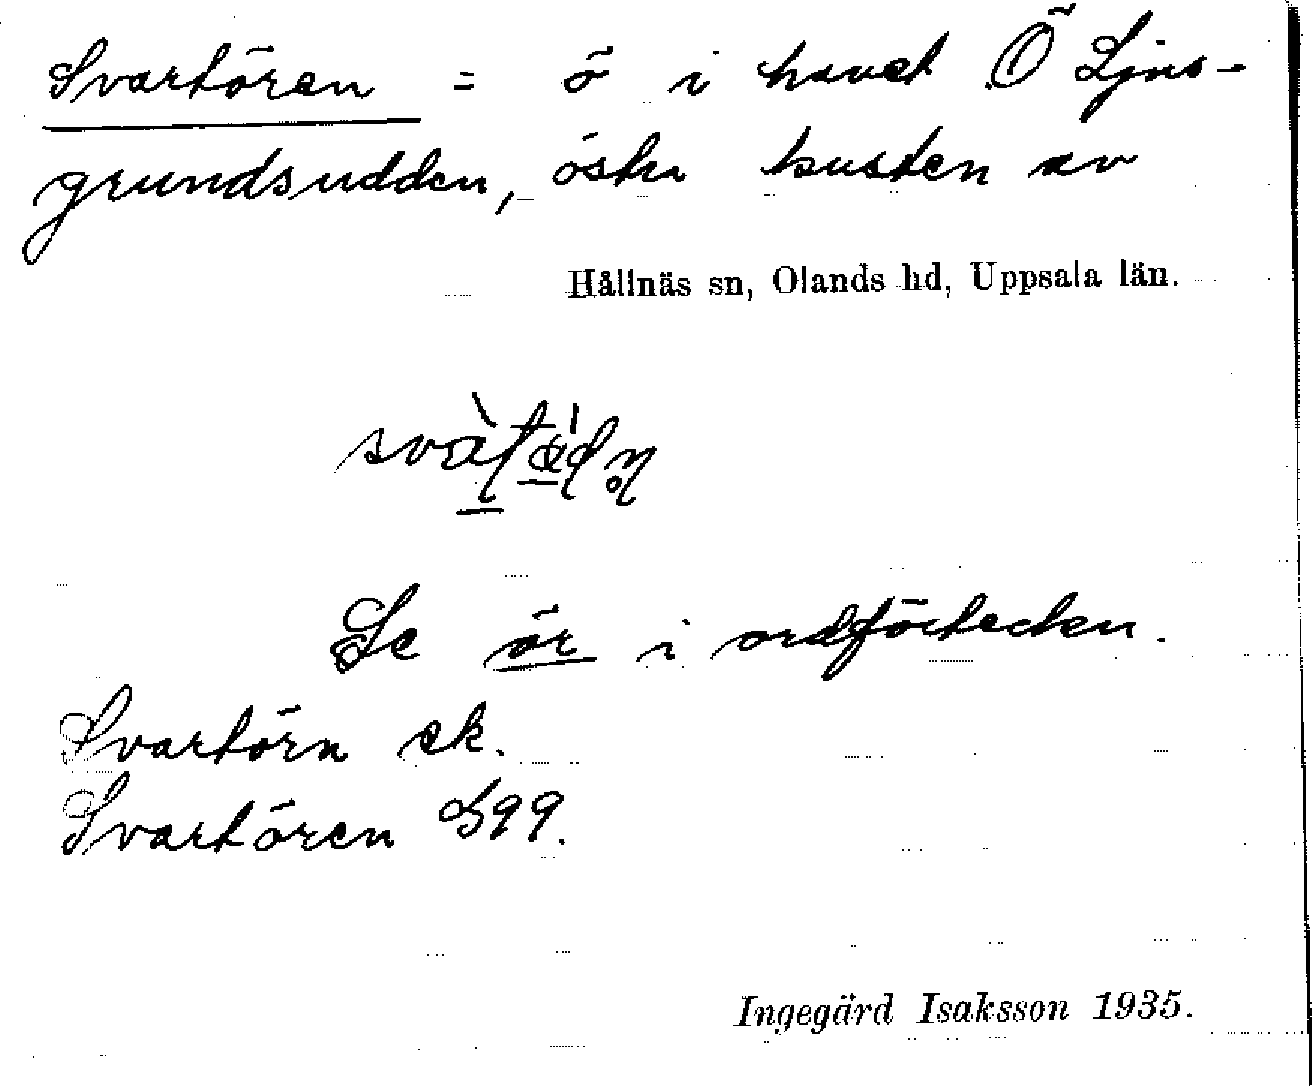 Svartören = ö i havet Ö Ljus-
grundsudden, östra kusten av
Hållnäs sn, Olands hd, Uppsala län.
Se ör i ordförtecken.
Svartörn ek.
Svartören S99.
Ingegärd Isaksson 1935.